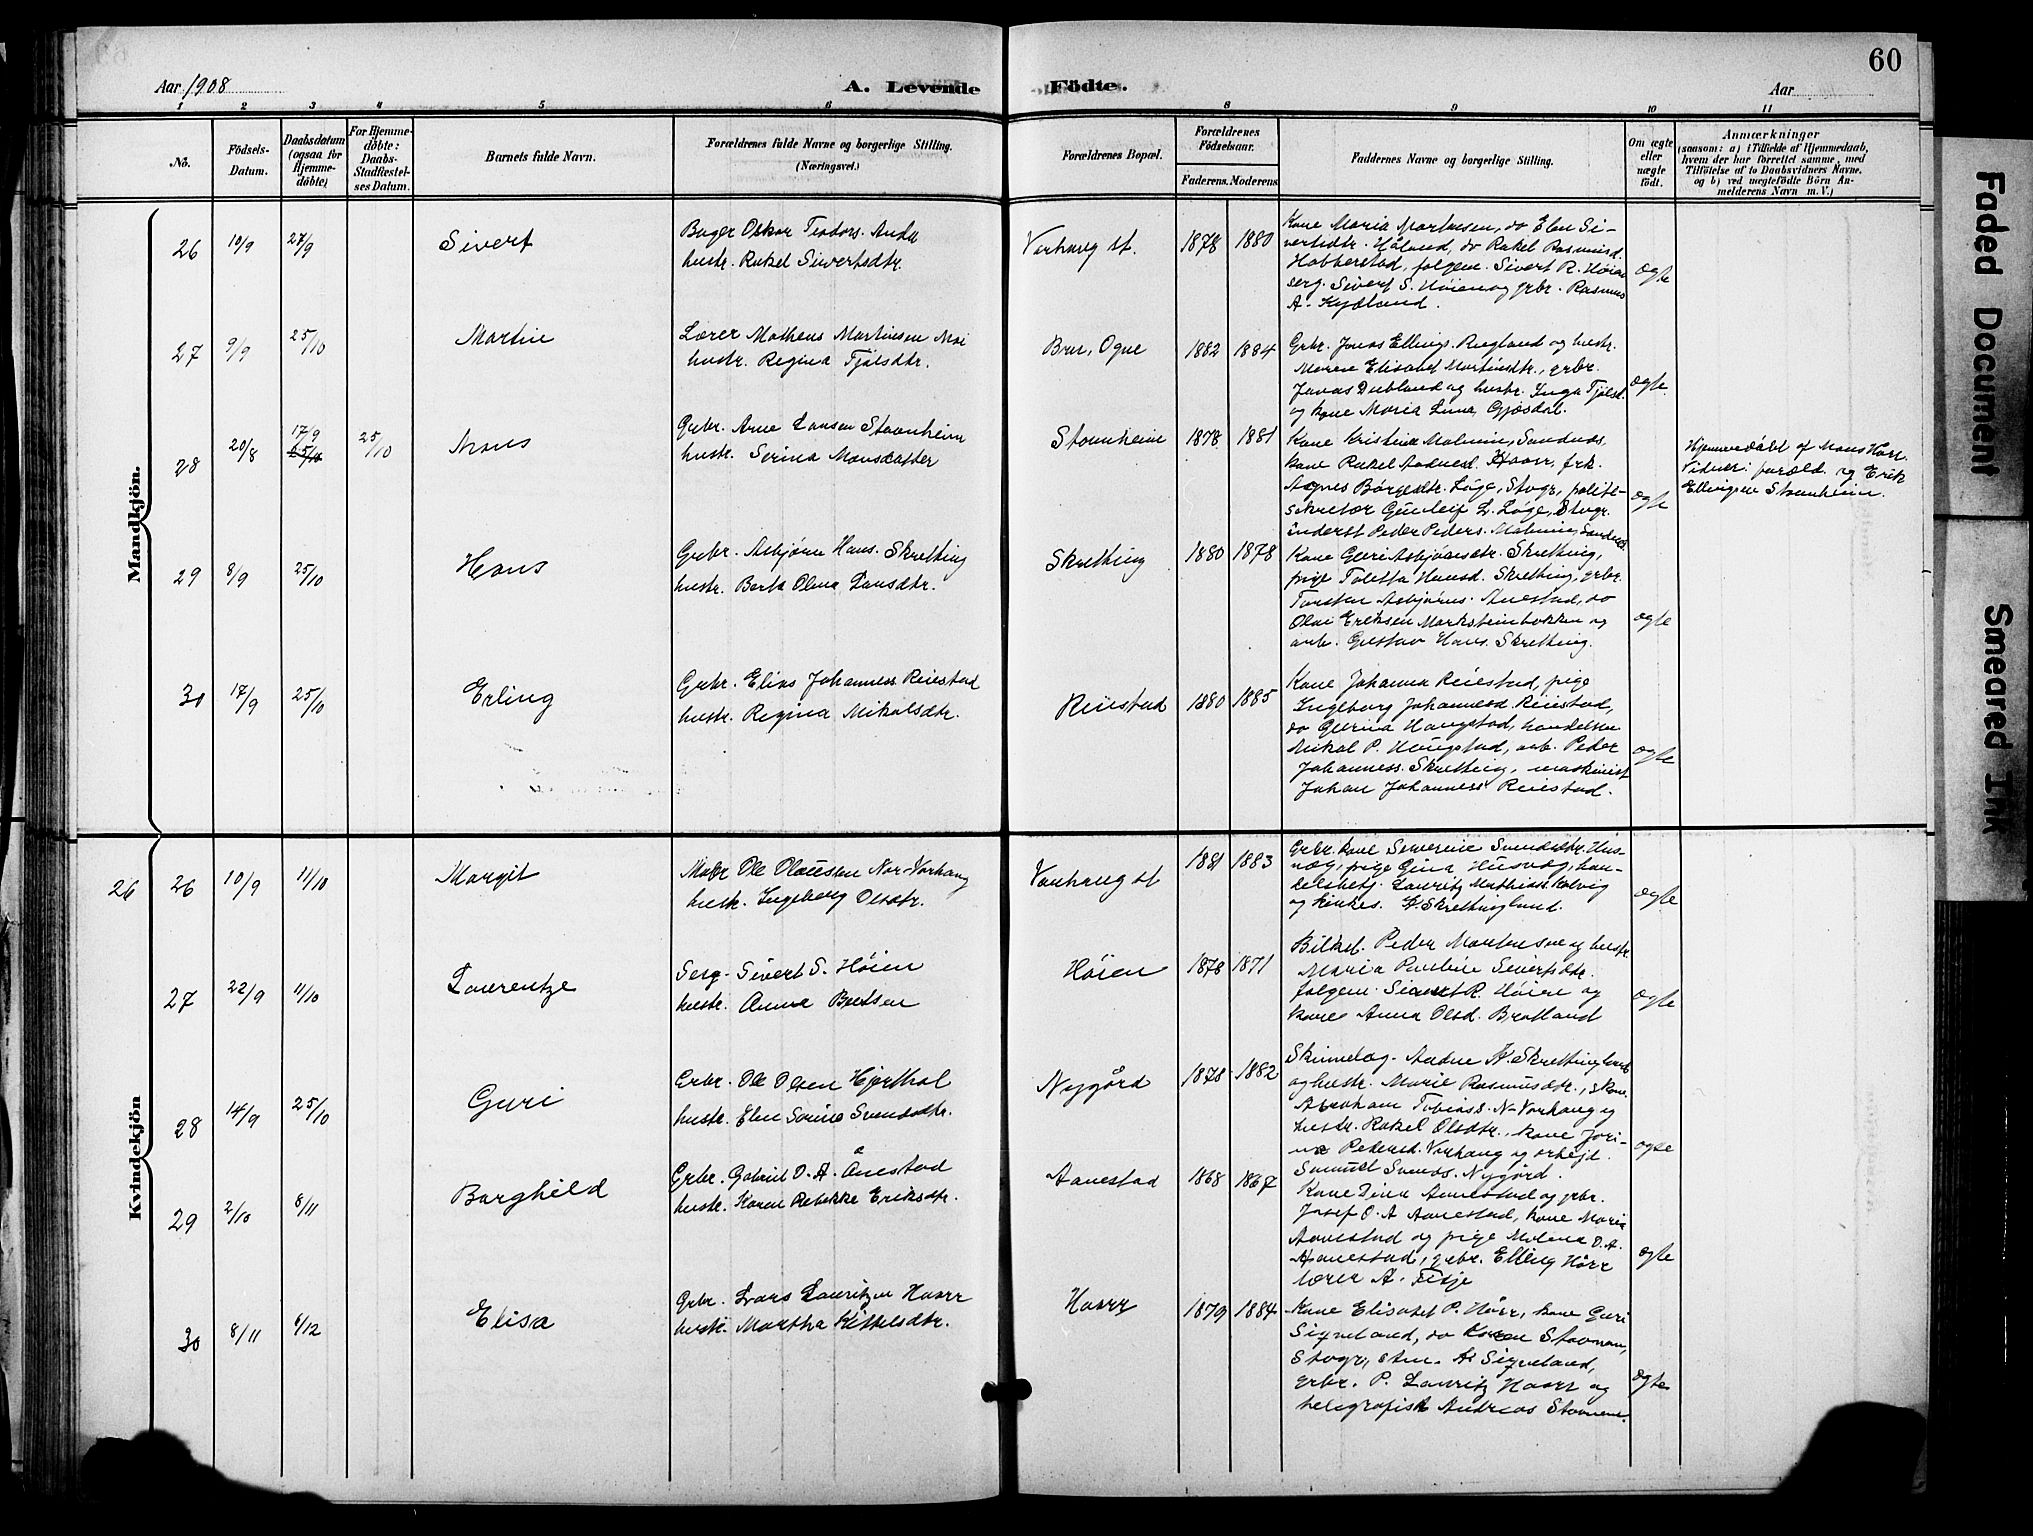 60
Aar 1908
A. Levende Födte.
Aar
1 2 3 4 5 6 8 9 10 11
No.
Födsels-
Datum.
Daabsdatum
(ogsaa for
Hjemme-
döbte)
For Hjemme-
döbte:
Daabs-
Stadfæstel-
ses Datum.
Barnets fulde Navn.
Forældrenes fulde Navne og borgerlige Stilling.
(Næringsvei.)
Forældrenes Bopæl.
Forældrenes
Födselsaar.
Faderens. Moderens
Faddernes Navne og borgerlige Stilling.
Om ægte
eller
uægte
født.
Anmærkninger
(saasom: a) i Tilfælde af Hjemmedaab,
hvem der har forrettet samme, med
Tilföielse af to Daabsvidners Navne,
og b) ved uægtefödte Börn An-
melderens Navn m. V.)
Mandkjön.
26 10/9 27/9 Sivert
Bager Oskar Teodors. Anda
hustr. Rakel Sivertsdtr.
Varhaug st. 1878 1880
Kone Maria Mortensen, do Elen Si-
vertsdtr. Håland, do Rakel Rasmusd.
Hobberstad, folgem. Sivert R. Høien
serg. Sivert S. Høien og grbr. Rasmus
A. Kydland.
ægte
27 9/9 25/10 Martin
Lærer Matheus Martinsen Moi
hustr. Regina Tjølsdtr.
Bru, Ogne 1882 1884
Grbr. Jonas Ellings. Rugland og hustr.
Maren Elisabet Martinsdtr., grbr.
Jonas Dubland og hustr. Inga Tjølsd.
og kone Maria Lima, Gjæsdal.
ægte.
28 20/8 17/9 25/10 25/10 Mons
Grbr. Arne Larsen Stavnheim
hustr. Serina Monsdatter
Stavnheim 1878 1881
Kone Kristine Malmin, Sandnæs,
kone Rakel Aadnesd. Haarr, frk.
Agnes Börgesdtr. Løge, Stvgr, politi-
sekretær Gunleif L. Løge, Stvgr.
inderst Peder Peders. Malmin, Sandnes
ægte
Hjemmedøbt af Mons Hårr.
Vidner: foræld. og Erik
Ellingsen Stavnheim.
29 8/9 25/10 Hans
Grbr. Asbjørn Hans. Skretting
hustr. Berta Olina Larsdtr.
Skretting 1880 1878
Kone Guri Asbjørnsdtr. Skretting,
pige Toletta Hansd. Skretting, grbr.
Torsten Asbjørns. Anestad, do
Olai Eriksen Marksteinbakken og
arb. Gustav Hans. Skretting.
ægte
30 17/9 25/10 Erling
Grbr. Elias Johanness Reiestad
hustr. Regina Mikalsdtr.
Reiestad 1880 1885
Kone Johanna Reiestad, pige
Ingeborg Johannesd. Reiestad,
do Gurina Haugstad, handelsm
Mikal P. Haugstad, arb. Peder
Johanness. Skretting, maskinist
Johan Johanness. Reiestad.
ægte
Kvindekjön
26 26 10/9 11/10 Margit
Ole Olaussen Nor-Varhaug
hustr. Ingeborg Olsdtr.
Varhaug st 1881 1883
Grbr. kone Severine Svendsdtr. Hus-
væg, pige Gina Husvæg, han-
delsbetj. Lauritz Mathias Kalvig
og Skrettingland.
ægte
27 22/9 11/10 Laurentze
Serg. Sivert S. Høien
hustr. Anna
Høien 1878 1871
Peder Mortensen og hustr.
Maria Pauline Sivertsdtr.
folgem. Sivert R. Høien og
kone Anna Olsd. Bratland
ægte
28 14/9 25/10 Guri
Grbr. Ole Olsen Hjorthol
hustr. Elen Sorine Svendsdtr.
Nygård 1878 1882
Aadne Skrettingland
og hustr. Marie Rasmusdtr.,
Abraham Tobiass. N-Varhaug og
hustr. Rakel Olsdtr., kone Jori-
ne Pedersd. Varhaug og arbejd.
Samuel Svends. Nygård.
ægte
29 2/10 8/11 Borghild
Grbr. Gabriel O. A. Ånestad
hustr. Karen Rebekke Eriksdtr.
Aanestad 1868 1867
Kone Dina Aanestad og grbr.
Josef O. A Aanestad, kone Maria
Aanestad og pige Malena O. A.
Aanestad, grbr. Elling Hårr
lærer A. Eije
ægte
30 8/11 6/12 Elisa
Grbr. Lars Lauritzen Haarr
hustr. Martha Kittelsdtr.
Haarr 1879 1884
Kone Elisabet P. Hårr, kone Guri
Sigveland, do Karen Stavnem,
Stvgr, A. Sigveland,
grbr. P. Lauritz Haarr og
telegrafist Andreas Stavnem.
ægte
Faded Document
Smeared Ink